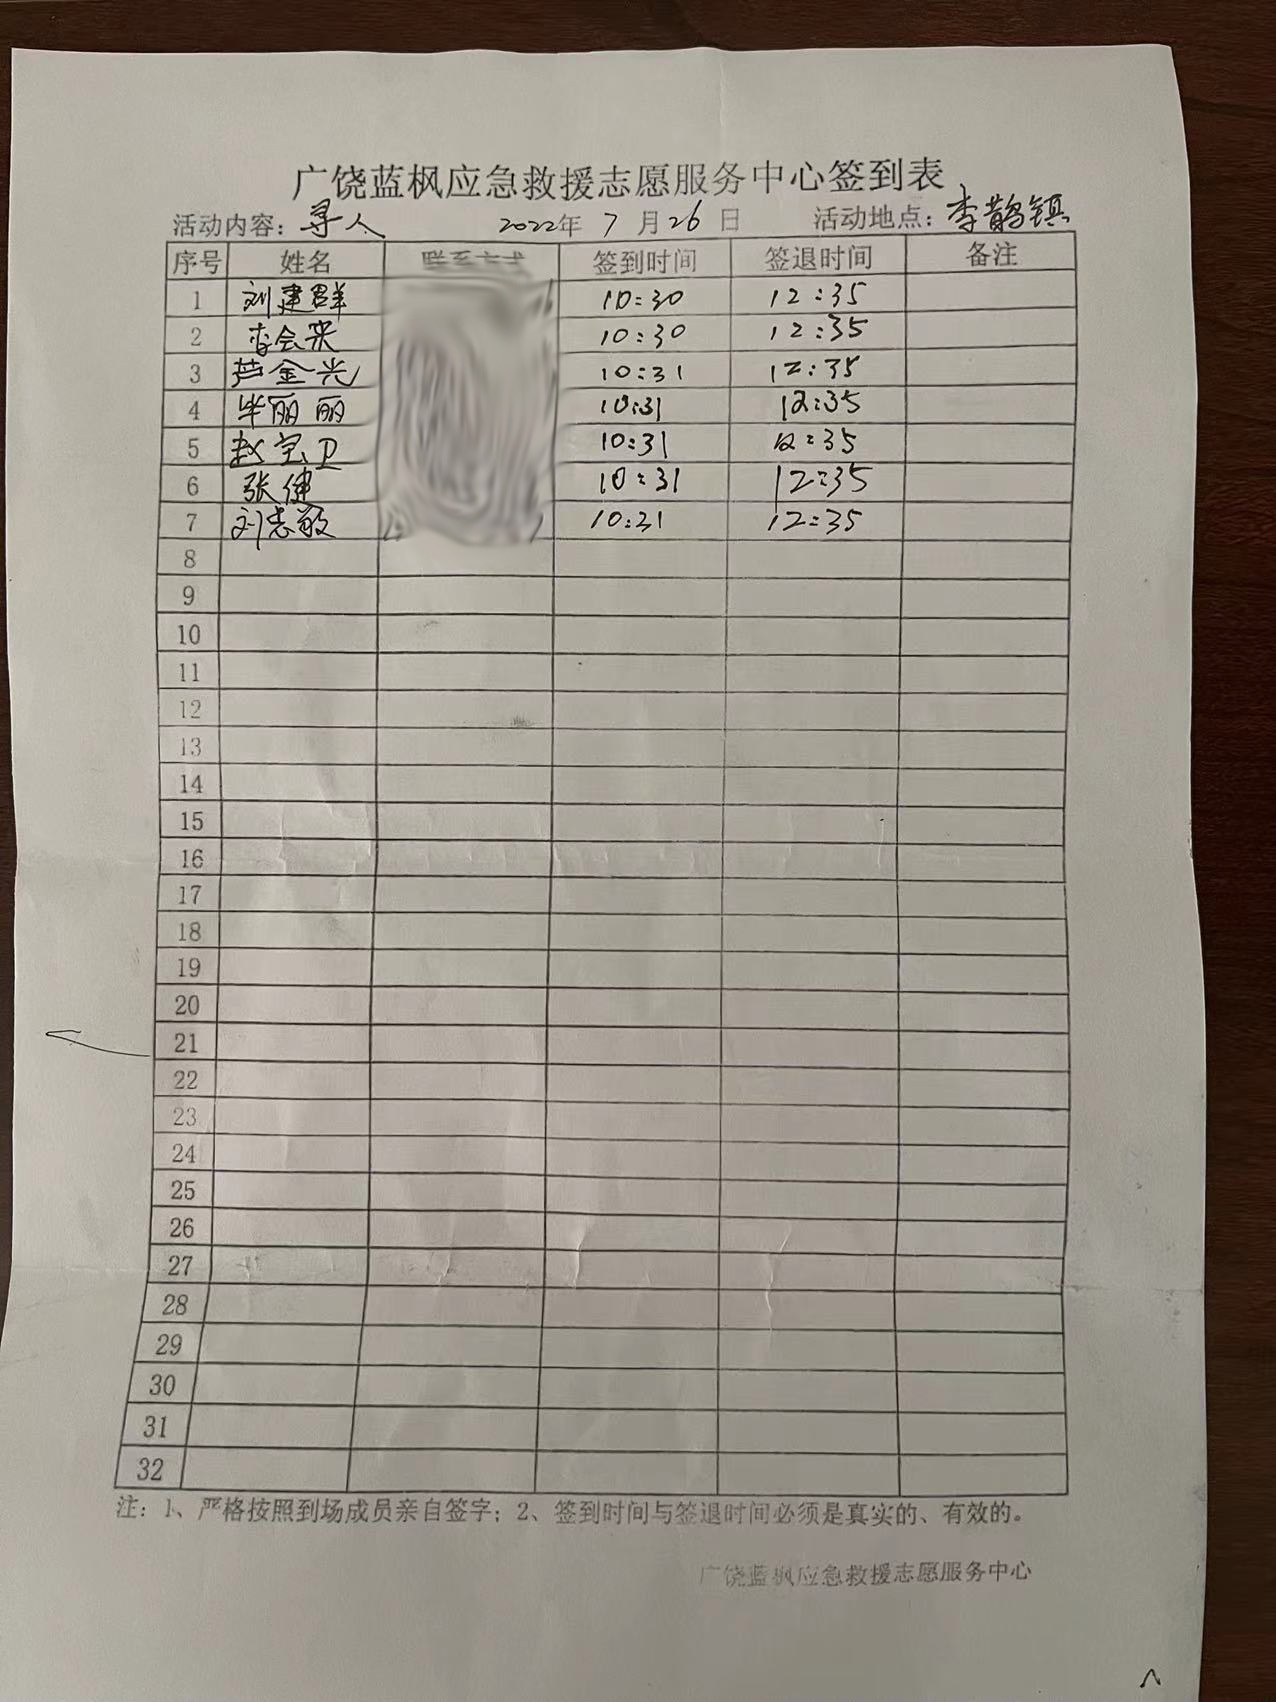 广饶蓝枫应急救援志愿服务中心签到表
活动内容：寻人 2022年 7 月 26 日 活动地点：李鹊镇
序号 姓名 联系方式 签到时间 签退时间 备注
1 刘建群 10:30 12:35
2 李会来 10:30 12:35
3 芦金光 10:31 12:35
4 毕丽丽 10:31 12:35
5 赵宝卫 10:31 12:35
6 张健 10:31 12:35
7 刘志敏 10:31 12:35
8
9
10
11
12
13
14
15
16
17
18
19
20
21
22
23
24
25
26
27
28
29
30
31
32
注：1、严格按照到场成员亲自签字；2、签到时间与签退时间必须是真实的、有效的。
广饶蓝枫应急救援志愿服务中心